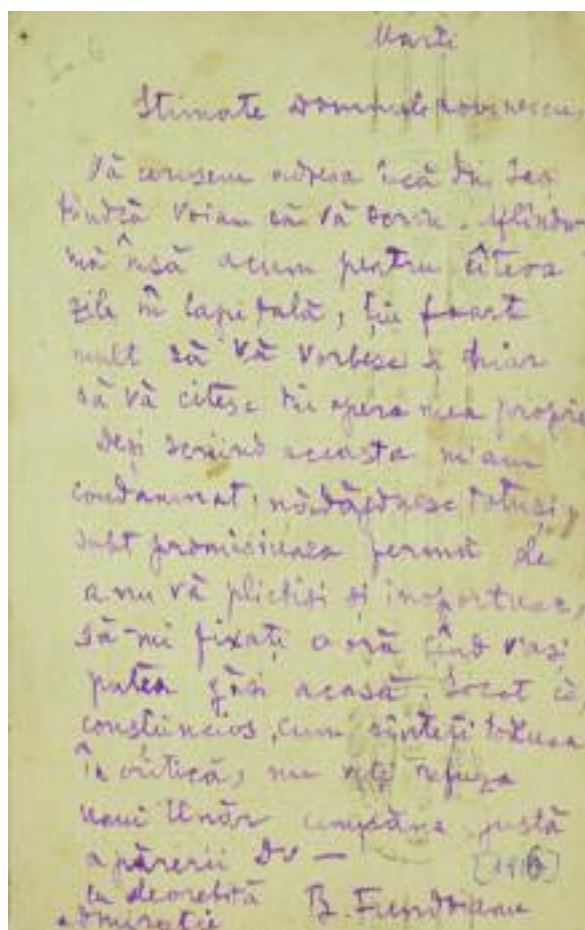 Marți
Stimate Domnule Lovinescu,
Vă cerusem adresa încă din Iași
fiindcă voiam să vă scriu. Aflîndu
mă însă acum pentru cîteva
zile în Capitală, țiu foart
mult să vă vorbesc și chiar
să vă citesc din opera mea proprie
Deși scriind aceasta m'am
condamnat, nădăjduesc totuși,
subt promisiunea fermă de
a nu vă plictisi și inoportuna,
să-mi fixați o oră cînd v'aș
putea găsi acasă. Socot că
conștiincios, cum sînteți
în critică, nu veți refuza
unui tînăr cumpăna justă
a părerii Dv —
cu deosebită [1916]
admirație B. Fundoianu